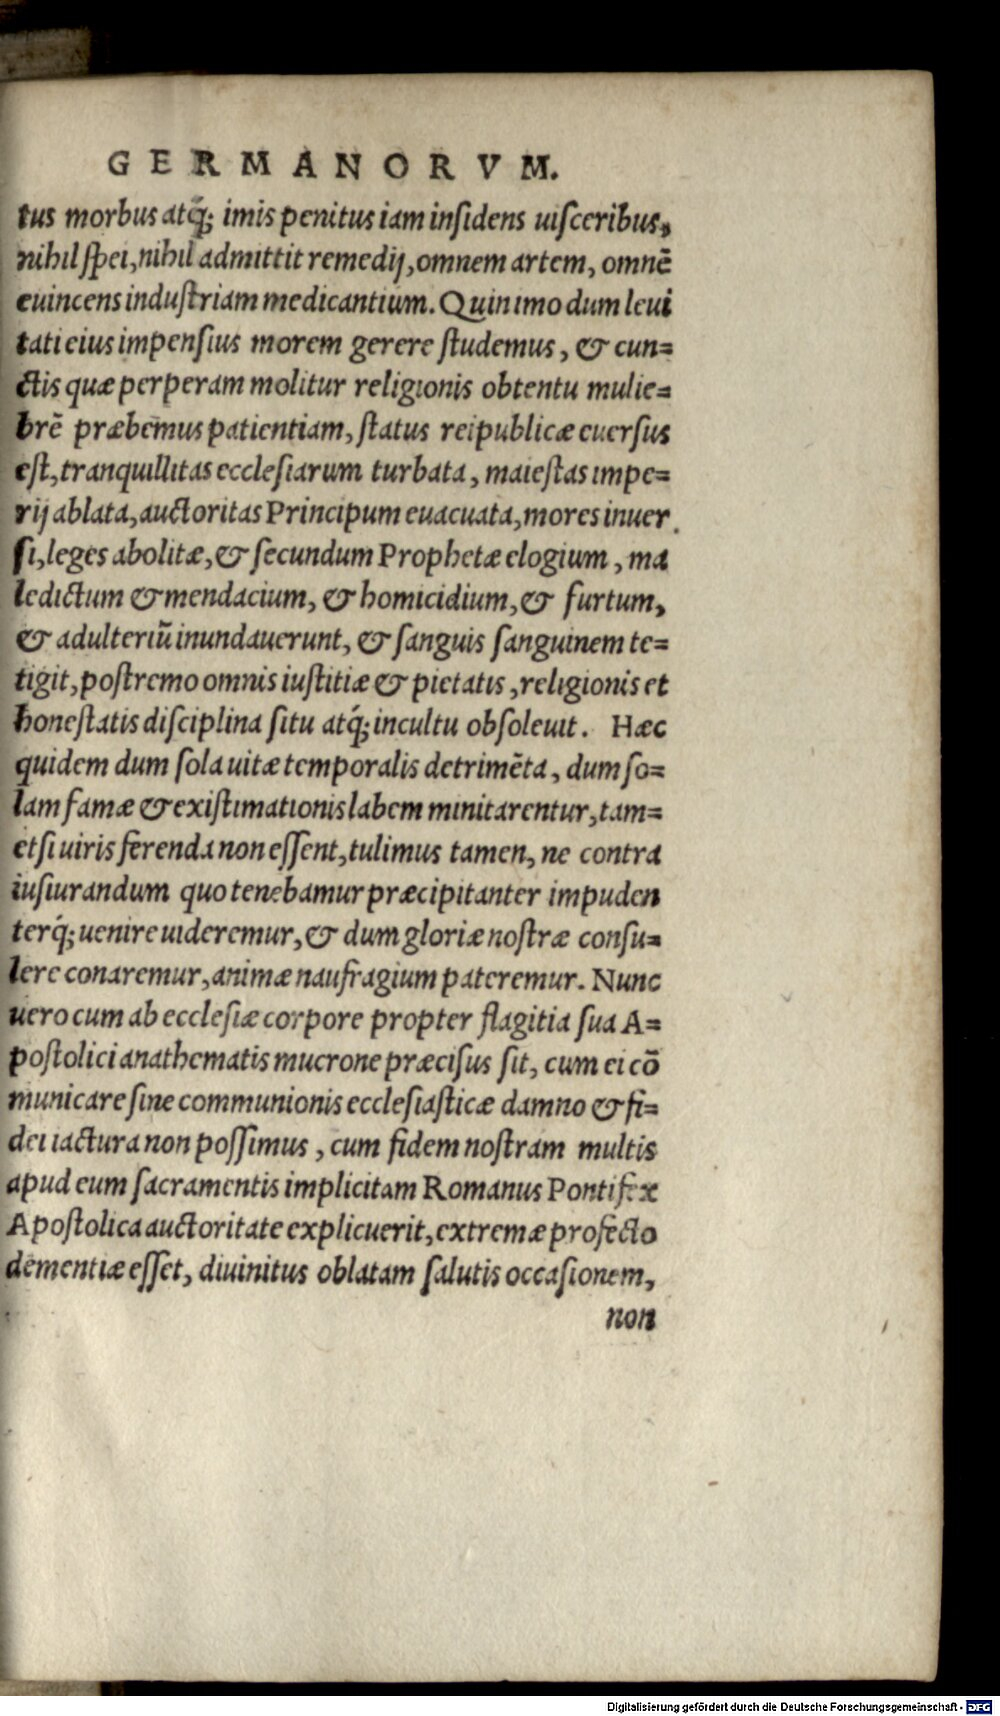 GERMANORVM.
tus morbus atq́; imis penitus iam insidens uisceribus,
nihil spei, nihil admittit remedij, omnem artem, omnē
euincens industriam medicantium. Quin imo dum leui
tati eius impensius morem gerere studemus, & cun=
ctis quæ perperam molitur religionis obtentu mulie=
brē præbemus patientiam, status reipublicæ euersus
est, tranquillitas ecclesiarum turbata, maiestas impe=
rij ablata, auctoritas Principum euacuata, mores inuer
si, leges abolitæ, & secundum Prophetæ elogium, ma
ledictum & mendacium, & homicidium, & furtum,
& adulteriū inundauerunt, & sanguis sanguinem te=
tigit, postremo omnis iustitiæ & pietatis, religionis et
honestatis disciplina situ atq́; incultu obsoleuit. Hæc
quidem dum sola uitæ temporalis detrimēta, dum so=
lam famæ & existimationis labem minitarentur, tam=
etsi uiris ferenda non essent, tulimus tamen, ne contra
iusiurandum quo tenebamur præcipitanter impuden
terq́; uenire uideremur, & dum gloriæ nostræ consu=
lere conaremur, animæ naufragium pateremur. Nunc
uero cum ab ecclesiæ corpore propter flagitia sua A=
postolici anathematis mucrone præcisus sit, cum ei cō
municare sine communionis ecclesiasticæ damno & fi=
dei iactura non possimus, cum fidem nostram multis
apud eum sacramentis implicitam Romanus Pontifex
Apostolica auctoritate explicuerit, extremæ profecto
dementiæ esset, diuinitus oblatam salutis occasionem,
non
Digitalisierung gefördert durch die Deutsche Forschungsgemeinschaft - DFG